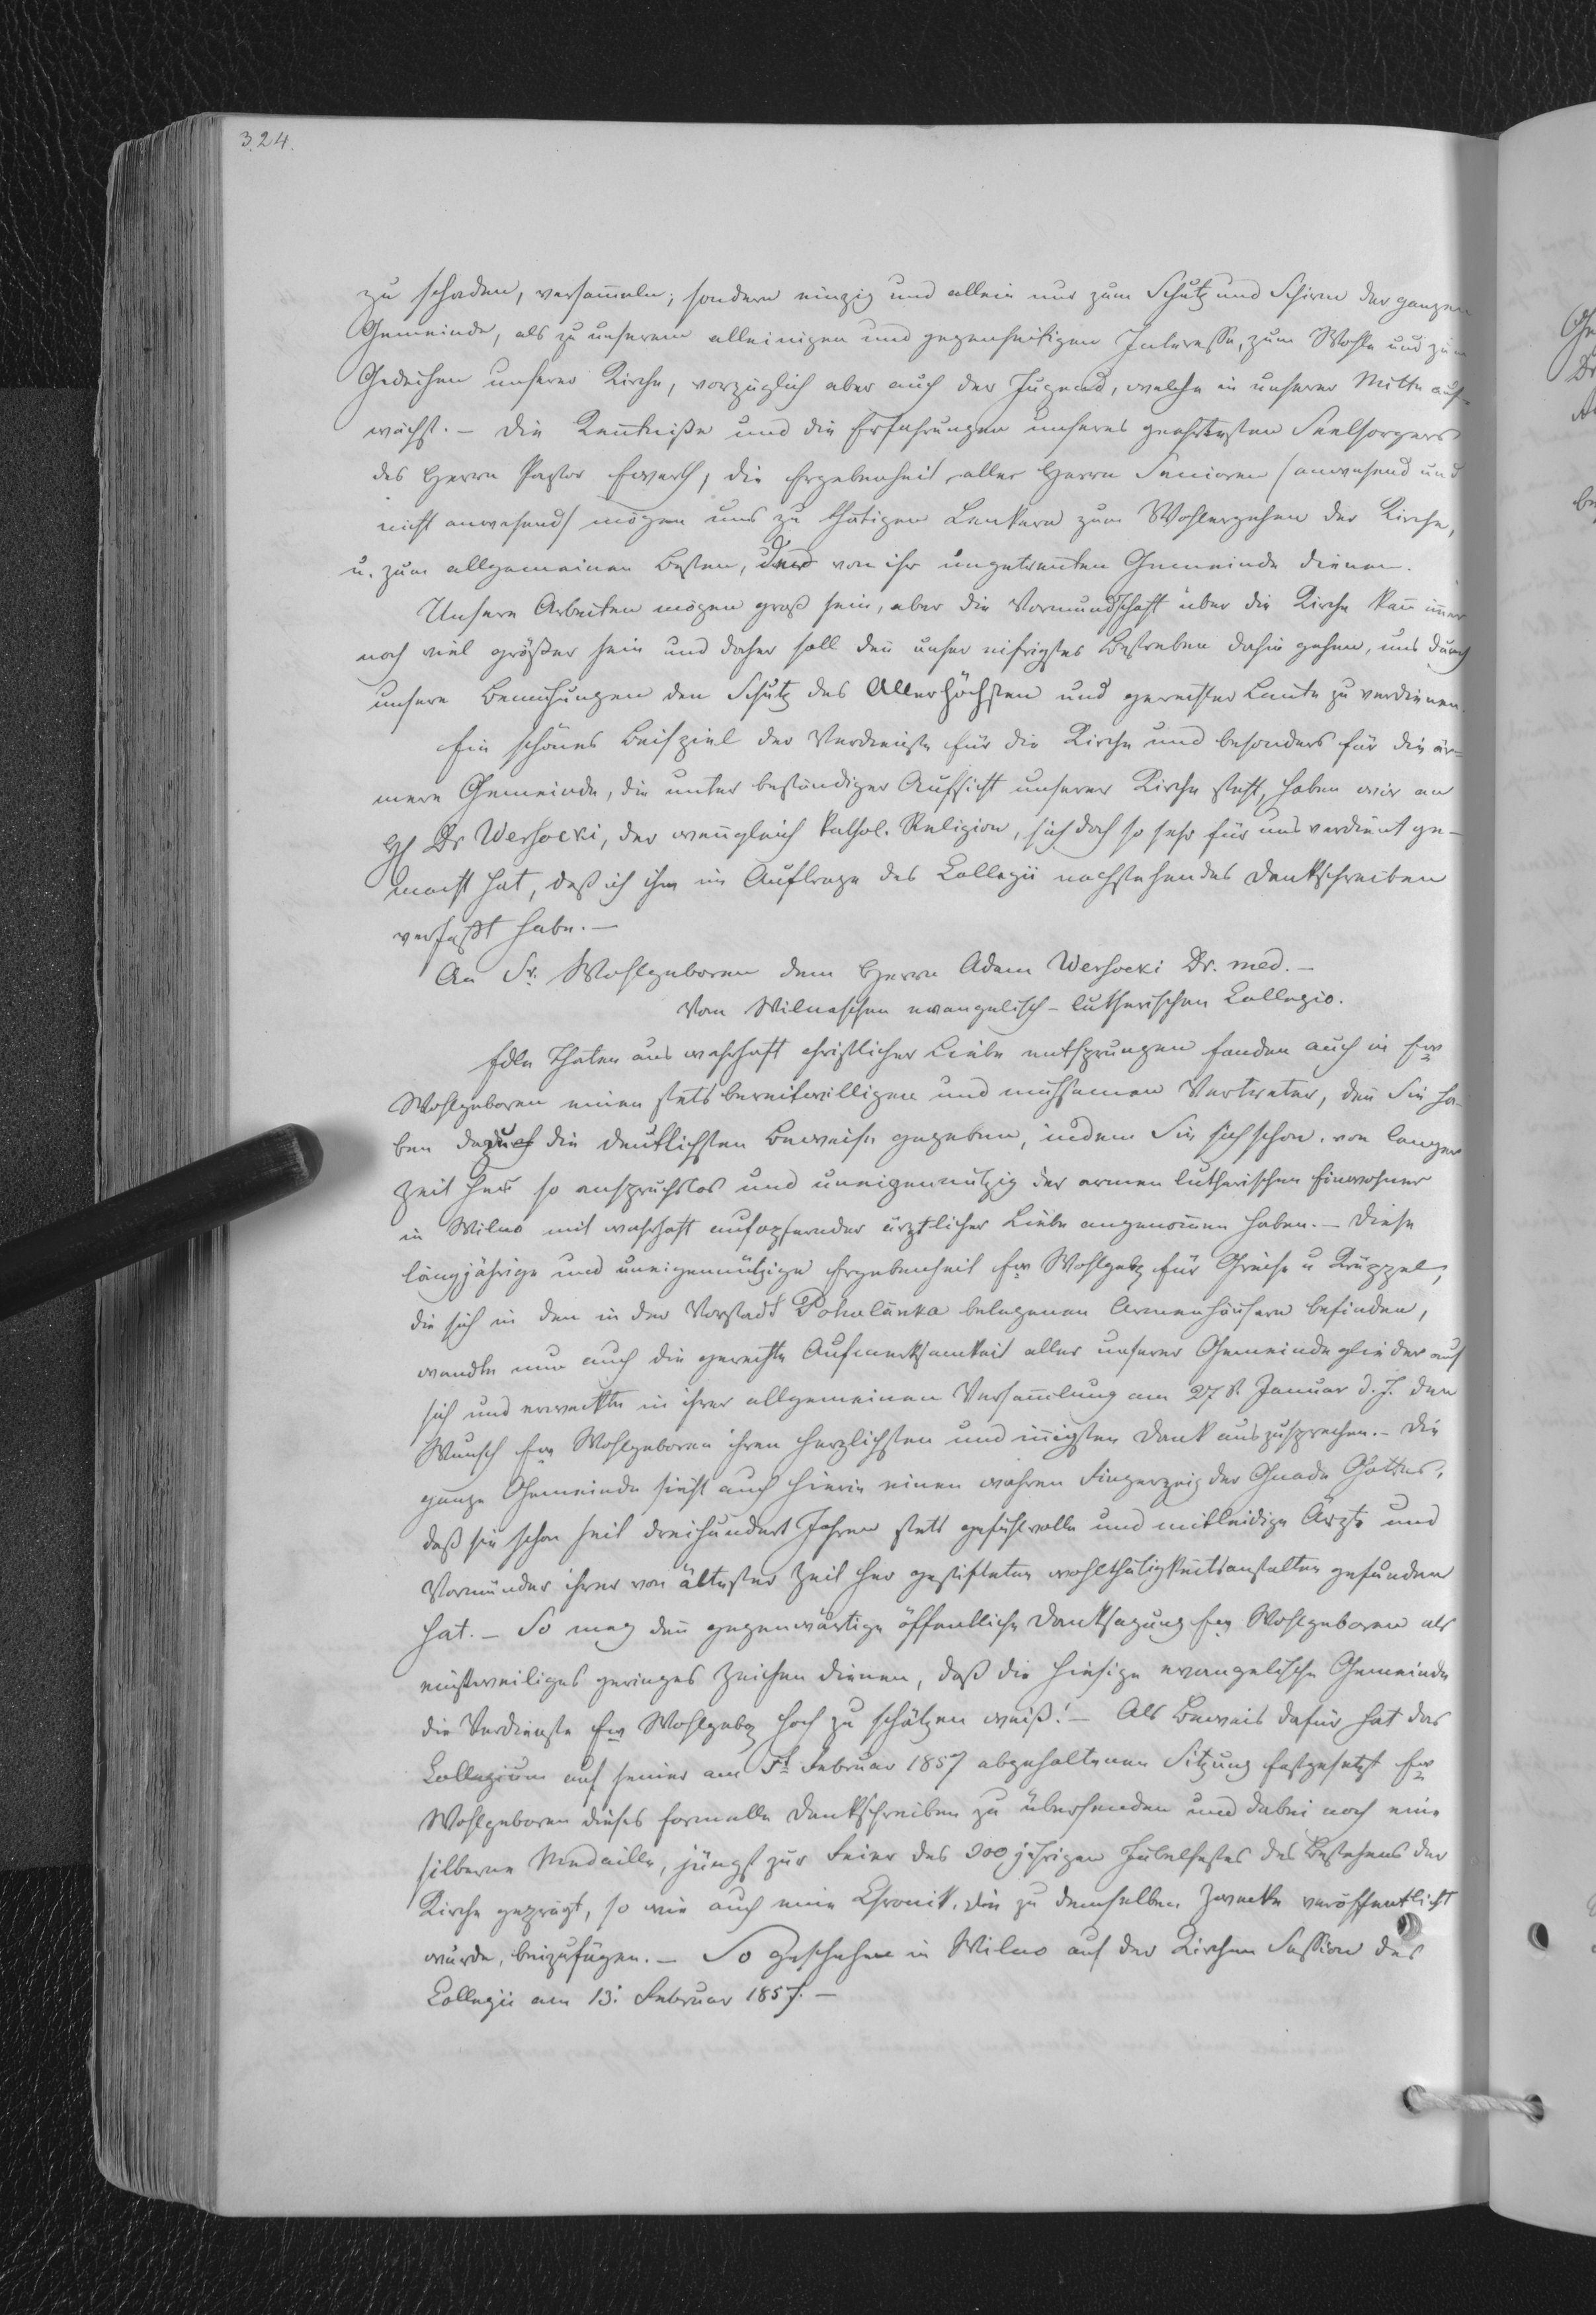 324.
zu schaden, versam̄eln; sondern einzig und allein nur zum Schutz und Schirm der ganzen
Gemeinde, als zu unserem alleinigen und gegenseitigen Interesse, zum Wohle und zum
Gedeihen unserer Kirche, vorzüglich aber auch der Jugend, welche in unserer Mitte auf-
wächst. – Die Ken̄tniße und die Erfahrungen unseres geehrtesten Seelsorgers
des Herrn Pastor Ewerth, die Ergebenheit aller Herrn Senioren (anwesend und
nicht anwesend) mögen uns zu thätigen Lenkern zum Wohlergehen der Kirche,
u. zum allgemeinen Besten, der von ihr ungetren̄ten Gemeinde dienen.
Unsere Arbeiten mögen groß sein, aber die Vormundschaft über die Kirche kan̄ im̄er
noch viel größer sein und daher soll den̄ unser eifrigstes Bestreben dahin gehen, uns durch
unsere Bemühungen den Schutz des Allerhöchsten und gerechter Leute zu verdienen.
Ein schönes Beispiel der Verdienste für die Kirche und besonders für die är-
mere Gemeinde, die unter beständiger Aufsicht unserer Kirche steht, haben wir an
H Dr Wersocki, der wen̄gleich kathol. Religion, sich doch so sehr für uns verdient ge-
macht hat, daß ich ihm im Auftrage des Collegii nachstehendes Dankschreiben
verfaßt habe. –
An Sr. Wohlgeboren dem Herrn Adam Wersocki Dr. med. –
Vom Wilnaschen evangelisch-lutherischen Collegio.
Edle Thaten aus wahrhaft christlicher Liebe entsprungen fanden auch in Ew
Wohlgeboren einen stets bereitwilligen und mühsamen Vertreter, den̄ Sie ha-
ben die deutlichsten Beweise gegeben, indem Sie sich schon von langer
Zeit her so anspruchslos und uneigennützig der armen lutherischen Einwohner
in Wilno mit wahrhaft aufopfernder ärztlicher Liebe angenom̄en haben. – Diese
langjährige und uneigennützige Ergebenheit Ew Wohlgeb für Greise u Krüppel,
die sich in den in der Vorstadt Pohulanka belegenen Armenhäusern befinden,
wandte nun auch die gerechte Aufmerksamkeit aller unserer Gemeindeglieder auf
sich und erweckte in ihrer allgemeinen Versam̄lung am 27 t. Januar d. J. den
Wunsch Ew Wohlgeboren ihren herzlichsten und in̄igsten Dank auszusprechen. – Die
ganze Gemeinde sieht auch hierin einen wahren Fingerzeig der Gnade Gottes,
daß sie schon seit dreihundert Jahren stets gefühlvolle und mitleidige Ärzte und
Vormünder ihrer von ältester Zeit her gestifteten Wohlthätigkeitsanstalten gefunden
hat. – So mag den̄ gegenwärtige öffentliche Danksagung Ew Wohlgeboren als
einstweiliges geringes Zeichen dienen, daß die hiesige evangelische Gemeinde
die Verdienste Ew Wohlgeb hoch zu schätzen weiß! – Als Beweis dafür hat das
Collegium auf seiner am 5t Februar 1857 abgehaltenen Sitzung festgesetzt Ew
Wohlgeboren dieses formelle Dankschreiben zu übersenden und dabei noch eine
silberne Medaille, jüngst zur Feier des 300 jährigen Jubelfestes des Bestehens der
Kirche geprägt, so wie auch eine Chronik, die zu demselben Zwecke veröffentlicht
wurde, beizufügen. – So geschehen in Wilno auf der Kirchen Session des
Collegii am 13. Februar 1857. –